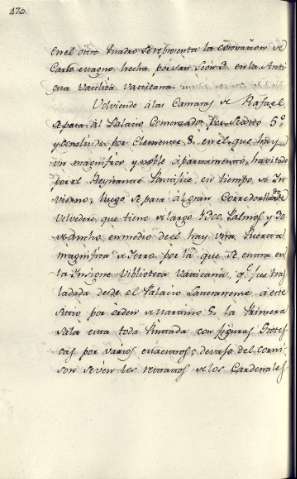 420.
en el otro quadro se representa la coronacion de
Carlo magno, hecha por Leon III en la Anti
cua Vasilica Vaticana.
Volviendo à las Camaras de Rafael
se pasa àl Palacio Comenzado por Sixto 5.º
y concluido por Clemente 8. en el que hay
un magnifico y noble àpartamento, havitado
por el Reynante Pontifice en tiempo de In
vierno; luego se pasa à el gran Corredor de
Velvedere, que tiene de largo palmos y de
ancho, en medio de el hay una Puerta
magnifica de Ierro por la que se entra en
la Insigne Biblioteca Vaticana, q.e fue tras
ladada desde el Palacio Lateranense à este
sitio por orden de la Primera
Sala esta toda Pintada con figuras Grotes
cas por varios; devajo del corni
son se ven los retratos de los Cardenales